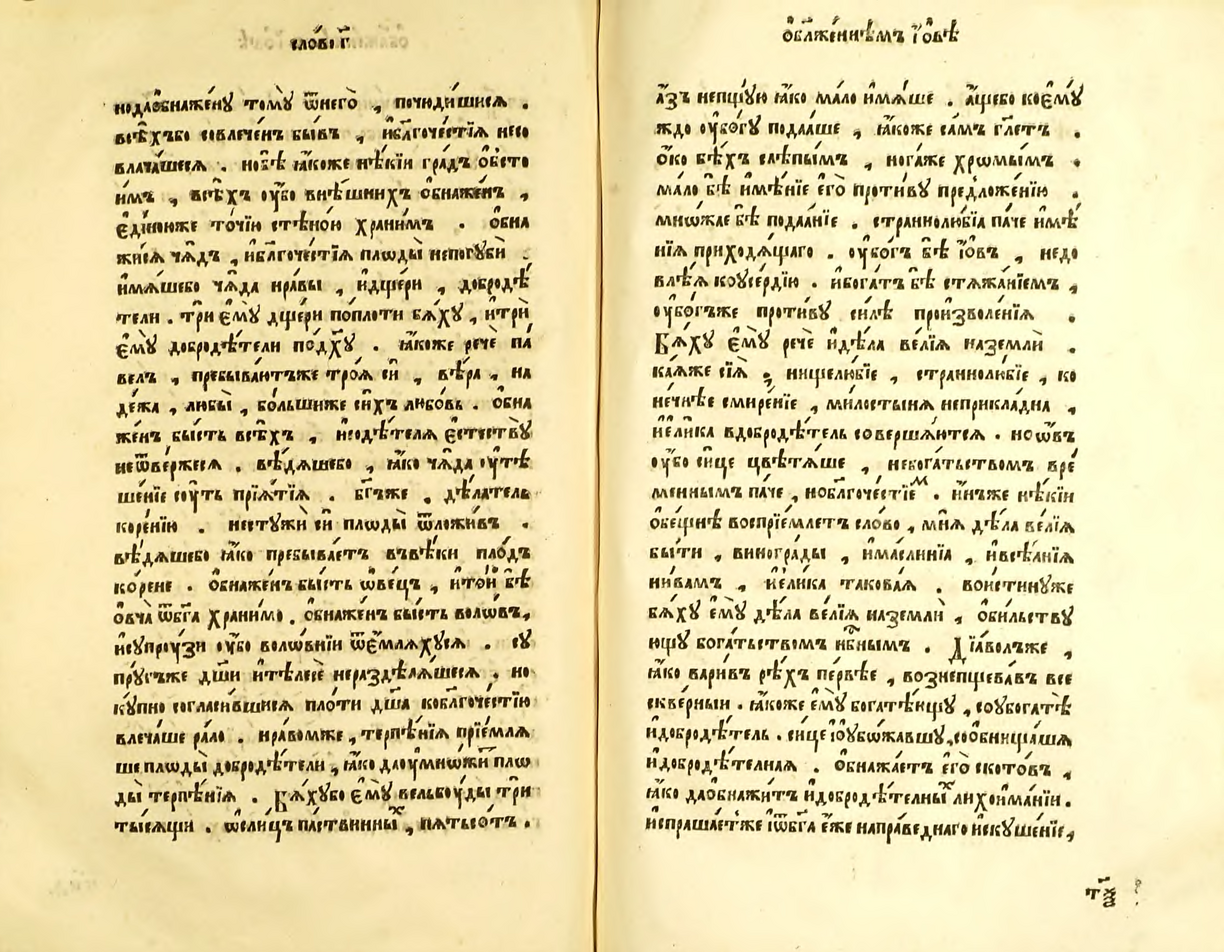 сло́во г҃
нодаѡ҆бнаже́нꙋ томꙋ̀ ѿнего̀ , почюди́шисѧ .
всѣ́хъбо совлече́нъ бы́въ , и҆бл҃гоче́стїѧ несо
влача́шесѧ . нобѣ̀ ꙗ҆́коже нѣ́кїи гра́дъ ѡ҆бсто
и́мъ , всѣ́хъ оу҆́бо внѣ́шнихъ ѡ҆бнаже́нъ ,
є҆ди́ноюже то́чїю стѣно́ю храни́мъ . ѡ҆бна
жи́сѧ ча́дъ , и҆бл҃гоче́стїѧ плоды̀ непогꙋбѝ .
и҆мѧ́шебо ча́да нра́вы , и҆дще́ри , добродѣ́
тели . трѝ є҆мꙋ̀ дще́ри попло́ти бѧ́хꙋ , и҆трѝ
є҆мꙋ̀ добродѣ́тели под̾дх҃ꙋ . ꙗ҆́коже речѐ па́
велъ , пребыва́ютъже троѧ̀ сїѝ , вѣ́ра , на
де́жа , любы̀ , бо́льшиже си́хъ любо́вь . ѡ҆бна
же́нъ бы́сть всѣ́хъ , и҆содѣ́телѧ є҆стествꙋ̀
неѿве́ржесѧ . вѣ́дѧшебо , ꙗ҆́ко ча́да оу҆тѣ
ше́нїе сꙋ́ть прїѧ́тїѧ . бг҃ъже , дѣ́латель
коре́нїю . нестꙋжѝ сѝ плоды̀ ѿложи́въ .
вѣ́дѧшебо ꙗ҆́ко пребыва́етъ въвѣ́ки пло́дъ
ко́рене . ѡ҆бнаже́нъ бы́сть ѻ҆ве́цъ , и҆то́й бѣ̀
ѻ҆вча̀ ѿбг҃а храни́мо . ѡ҆бнаже́нъ бы́сть воло́въ ,
и҆сꙋпрꙋ́зи оу҆́бо воло́внїи ѿе́млѧхꙋсѧ . сꙋ
прꙋ́гъже дш҃и и҆тѣ́лесе нераздѣлѧ́шесѧ . но
кꙋ́пно согласи́вшисѧ пло́ти дш҃а кобл҃гоче́стїю
влеча́ше ра́ло . нра́вомже , терпѣ́нїѧ прїе́млѧ
ше плоды̀ добродѣ́тели , ꙗ҆́ко даоу҆мно́жи пло
ды̀ терпѣ́нїѧ . Бѧ́хꙋбо є҆мꙋ̀ вельбоу́ды трѝ
ты́сѧщи . ѻ҆сли́цъ па́ствинны́хъ , пѧ́тьсо́тъ .
ѡ҆бл҃же́ннѣмъ і҆́ѡвѣ
а҆́зъ непщꙋ́ю ꙗ҆́ко ма́ло и҆мѧ́ше . а҆́щебо коемꙋ́
ждо оу҆бо́гꙋ пода́аше , ꙗ҆́коже са́мъ гл҃етъ .
ѻ҆́ко бѣ́хъ слѣпы́мъ , нога́же хромы́мъ .
ма́ло бѣ̀ и҆мѣ́нїе є҆гѡ̀ проти́вꙋ предложе́нїю .
мно́жае бѣ̀ пода́нїе . страннолю́бїа па́че и҆мѣ́
нїѧ приходѧ́щаго . оу҆бо́гъ бѣ̀ і҆́ѡвъ , недо
влѣ́ѧ коу҆се́рдїю . и҆бога́тъ бѣ̀ стѧжа́нїемъ ,
оу҆бо́гъже проти́вꙋ си́лѣ произволе́нїѧ .
Бѧ́хꙋ є҆мꙋ̀ речѐ и҆дѣ́ла ве́лїѧ наземлѝ .
ка́ѧже сїѧ̀ ; нищелю́бїе , страннолю́бїе , ко
не́чнѣе смире́нїе , ми́лостынѧ неприкла́дна ,
и҆е҆ли́ка вдобродѣ́тель соверша́ютсѧ . но́ѡвъ
оу҆́бо си́це цвѣтѧ́ше , небога́тьствомъ вре́
менны́мъ па́че , нобл҃гоче́стїемъ . и҆́нъже нѣ́кїи
ѻ҆бе́щнѣ воспрїе́млетъ сло́во , мнѧ̀ дѣ́ла ве́лїѧ
бы́ти , виногра́ды , и҆ма́слинїа , и҆всѣ́ѧнїѧ
ни́вамъ , и҆е҆ли́ка такова́ѧ . вои́стинꙋже
бѧ́хꙋ є҆мꙋ̀ дѣ́ла ве́лїѧ наземлѝ , ѡ҆би́льствꙋ
ющꙋ бога́тьствомъ нб҃нымъ . Дїа́волъже ,
ꙗ҆́ко вари́въ рѣ́хъ пе́рвѣе , вознепщева́въ все
скве́рныи . ꙗ҆́коже є҆мꙋ̀ богатѣ́ющꙋ , собогатѣ̀
и҆добродѣ́тель . си́це і҆оу҆бо́жавшꙋ , соѡбнища́шѧ
и҆добродѣ́телнаѧ . ѡ҆бнажа́етъ є҆го̀ ското́въ ,
ꙗ҆́ко даѡбнажи́тъ и҆добродѣ́телныхъ лихои҆ма́нїи .
и҆спраша́етже ѿбг҃а є҆́же напра́веднаго и҆скꙋше́нїе ,